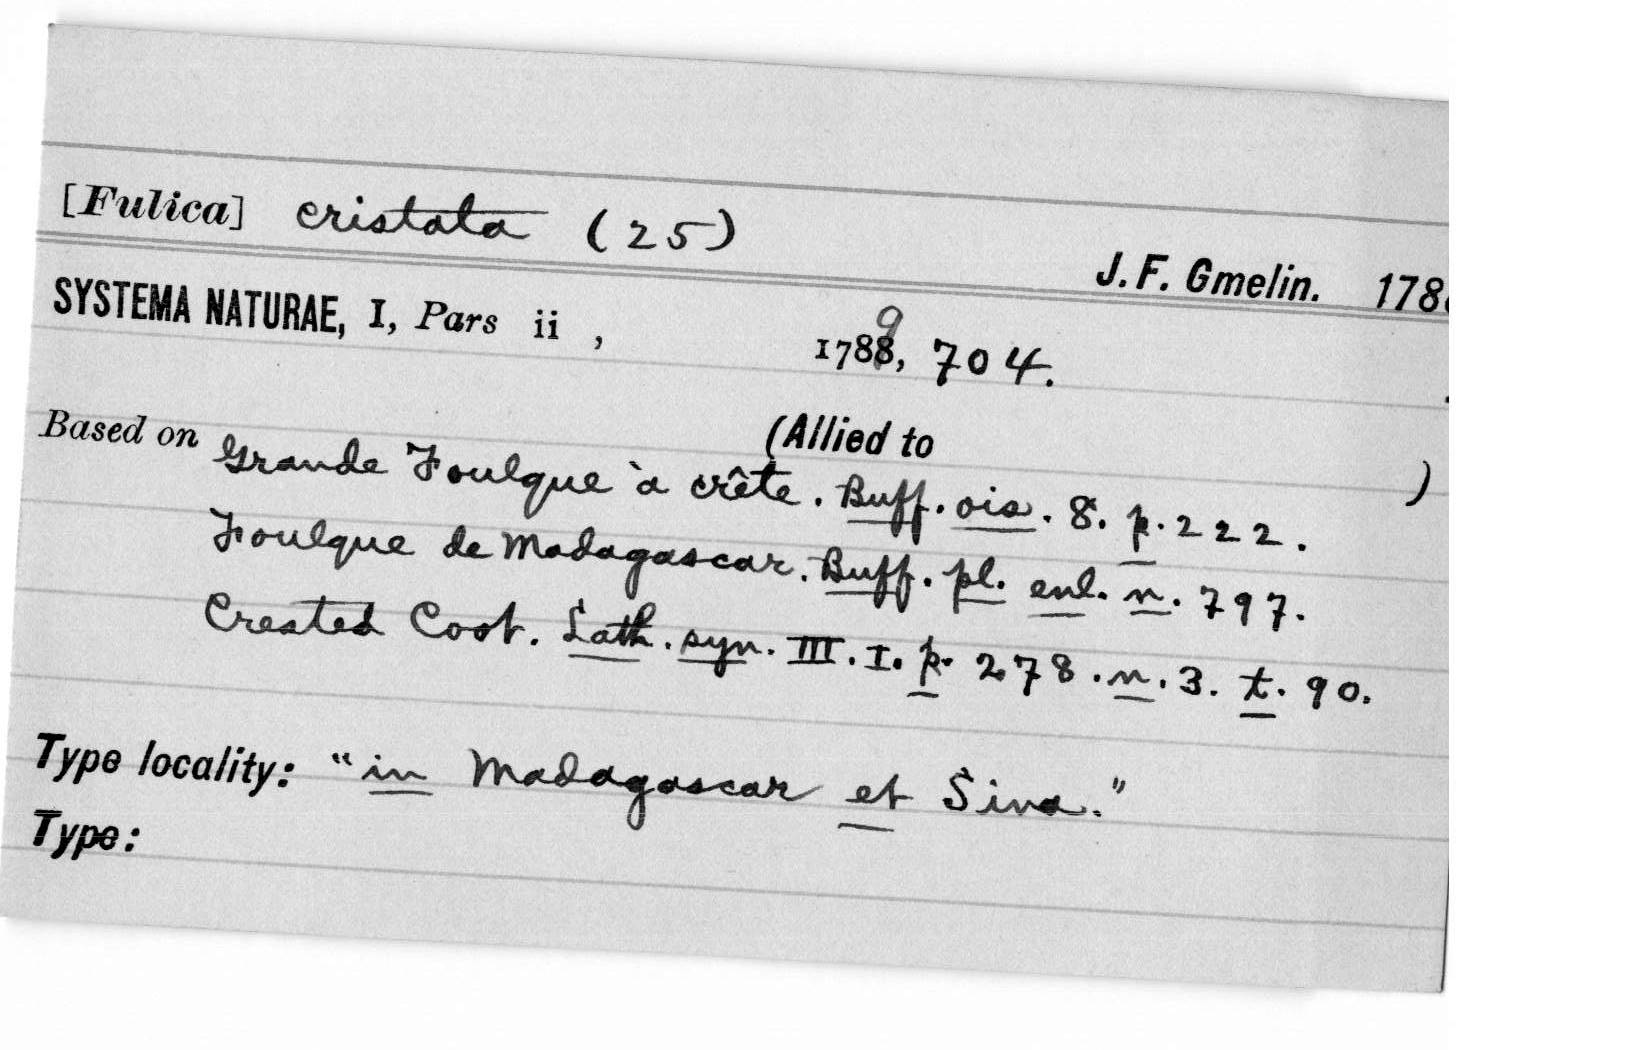 [Fulica] cristata (25)
J. F. Gmelin. 178
SYSTEMA NATURAE, I, Pars ii , 1788, 9 704.
Based on (Allied to )
Grande Foulque à crête. Buff. ois. 8. p. 222.
Foulque de Madagascar. Buff. pl. enl. n. 797.
Crested Coot. Lath. syn. III. I. p. 278. n. 3. t. 90.
Type locality: "in Madagascar et Sina."
Type: